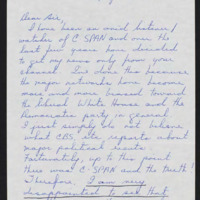 Dear Sir,
I have been an avid listener/
watcher of C-SPAN and over the
last few years have decided
to get my news only from your
channel. I've done this because
the major networks have become
more and more biased toward
the liberal White House and the
Democratic party in general.
I just simply do not believe
what CBS, etc. reports about
major political events.
Fortunately, up to this point
there was C-SPAN and the truth!
Therefore, I am very
disappointed to see that